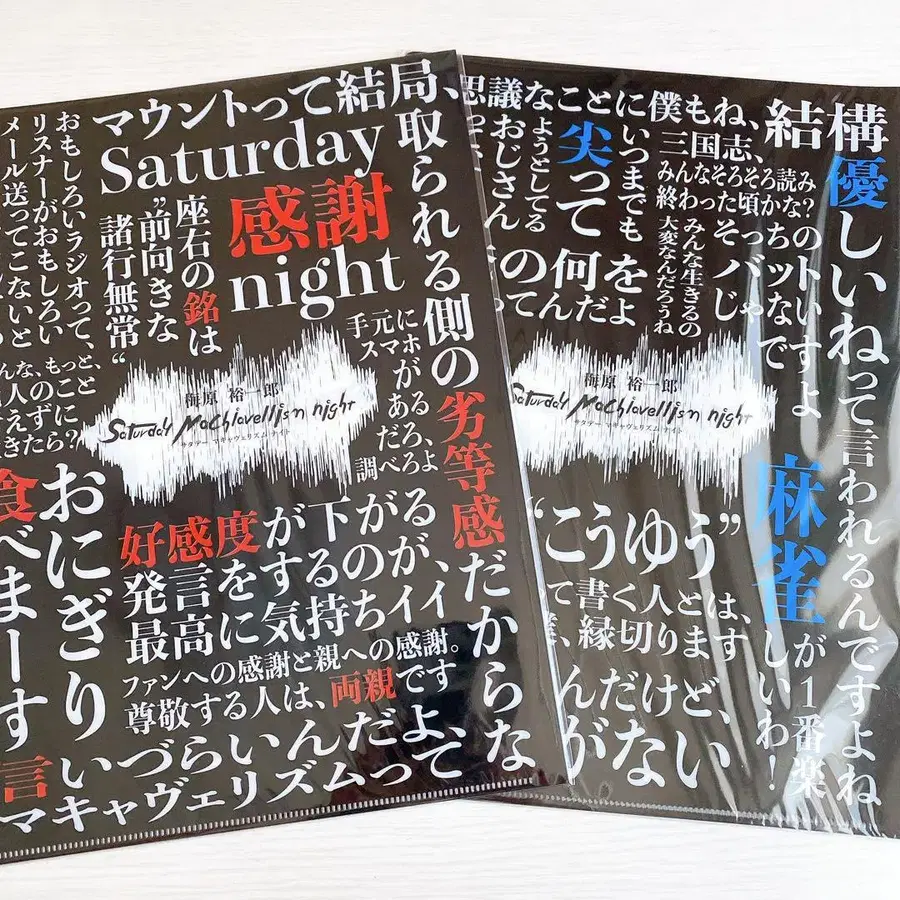 マウントって結局、
取られる側の劣等感だからな
Saturday
感謝
night
座右の銘は
”前向きな
諸行無常“
おもしろいラジオって、
リスナーがおもしろい
メール送ってこないと
手元にホ
スマがあるだろ、
調べろよ
梅原 裕一郎
Saturday Machiavellism night
サタデー マキャヴェリズム ナイト
おにぎり
食べまーす
好感度が下がる
発言をするのが、
最高に気持ちイイ
ファンへの感謝と親への感謝。
尊敬する人は、両親です
言いづらいんだよ、
マキャヴェリズムって
思議なことに僕もね、
結構
優しいねって言われるんですよね
三国志、
みんなそろそろ読み
終わった頃かな?
みんな生きるの
大変なんだろうね
いつまでも
尖って
ようとしてる
おじさん
そっちの
バッド
じゃないですよ
何だよ
梅原 裕一郎
Saturday Machiavellism night
サタデー マキャヴェリズム ナイト
“こうゆう”
て書く人とは、
僕、縁切ります
麻雀が1番楽
しいわ!
んだけど、
がない